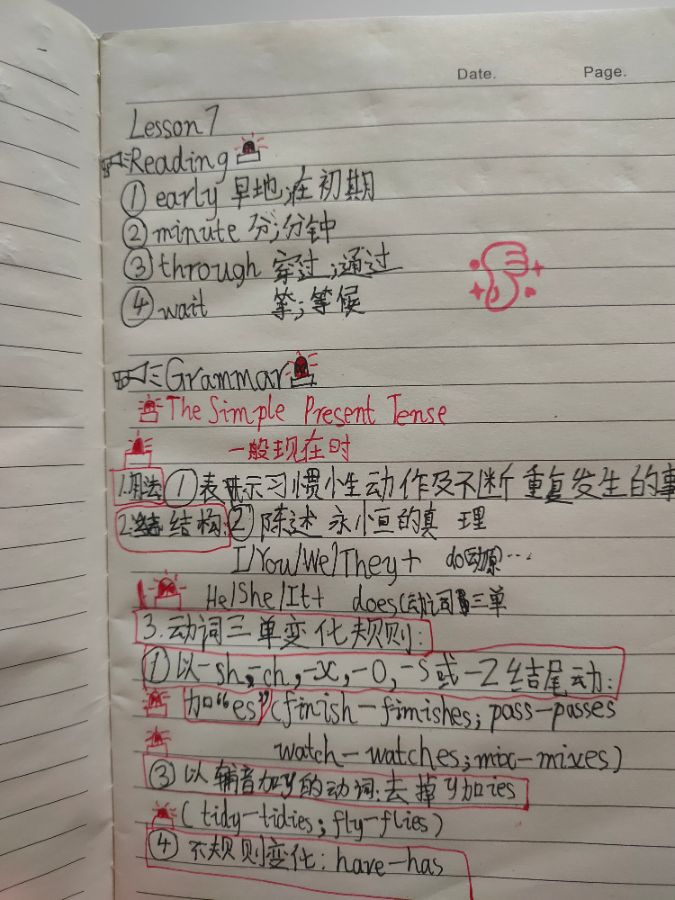 Date. Page.
Lesson 7
Reading
① early 早地;在初期
② minute 分;分钟
③ through 穿过;通过
④ wait 等;等候
Grammar
The Simple Present Tense
一般现在时
1.用法 ①表示习惯性动作及不断重复发生的事
2.结构: ②陈述永恒的真理
I/You/We/They+ do(动原…
He/She/It+ does(动词三单
3.动词三单变化规则:
①以-sh,-ch,-x,-o,-s或-z结尾动:
加"es"(finish-fimishes;pass-passes
watch-watches;mix-mixes)
③以辅音加y的动词:去掉y加ies
(tidy-tidies;fly-flies)
④不规则变化:have-has